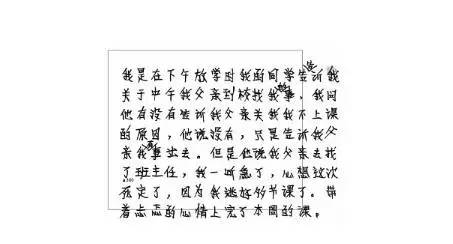 我是在下午放学时我的同学告诉我
关于中午我父亲到校找我事，我问
他有没有告诉我父亲关我我不上课
的原因，他说没有，只是告诉我父
亲我出去。但是他说我父亲去找
了班主任，我一听急了，心想这次
死定了，因为我逃好多节课了。带
着忐忑的心情上完了本周的课。